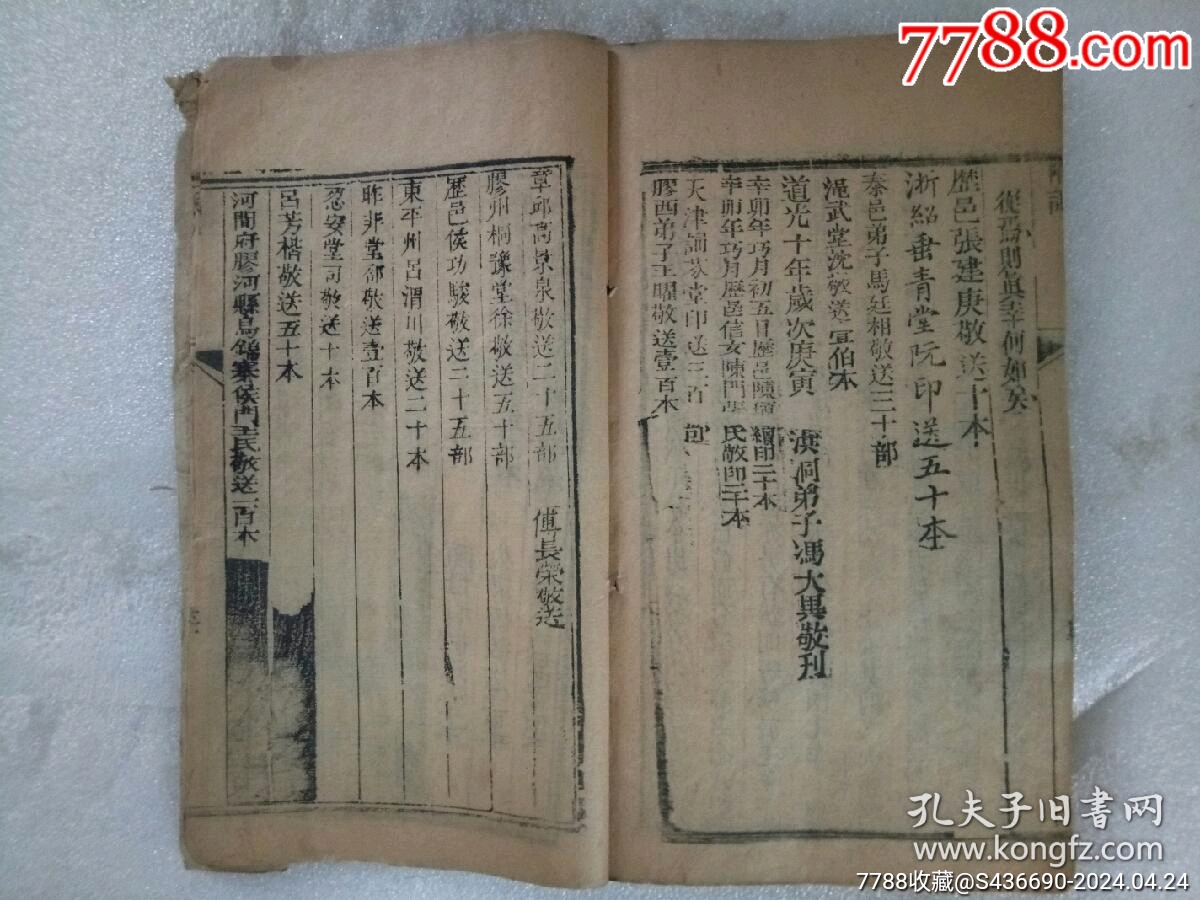 7788.com
復爲則眞幸何如矣
歷邑張建庚敬送十本
浙紹垂青堂阮印送五十本
秦邑弟子馬廷相敬送三十部
滬武堂沈敬送壹伯本
道光十年歲次庚寅 洪洞弟子馮大興敬刊
辛卯年巧月初五日歷邑陳 續印二十本
辛卯年巧月歷邑信女陳門 氏敬印二千本
天津 堂印送三百
膠西弟子王曜敬送壹百本
章邱高泉敬送二十五部 傅長榮敬送
膠州桐豫堂徐敬送五十部
歷邑侯功駿敬送二十五部
東平州呂渭川敬送二十本
昨非堂郝敬送壹百本
慈安堂司敬送十本
呂芳楷敬送五十本
河間府膠河縣 寨侯門王氏敬送一百本
孔夫子旧书网
www.kongfz.com
7788收藏@S436690-2024.04.24